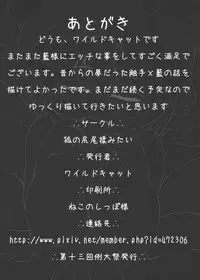 あとがき
どうも、ワイルドキャットです
またまた藍様にエッチな事をしてすごく満足で
ございます。昔からの夢だった触手×藍の話を
描けてよかったです。まだまだ続く予定なので
ゆっくり描いて行きたいと思います
∴サークル∴
狐の尻尾揉みたい
∴発行者∴
ワイルドキャット
∴印刷所∴
ねこのしっぽ様
∴連絡先∴
http://www.pixiv.net/member.php?id=472306
∴第十三回例大祭発行∴